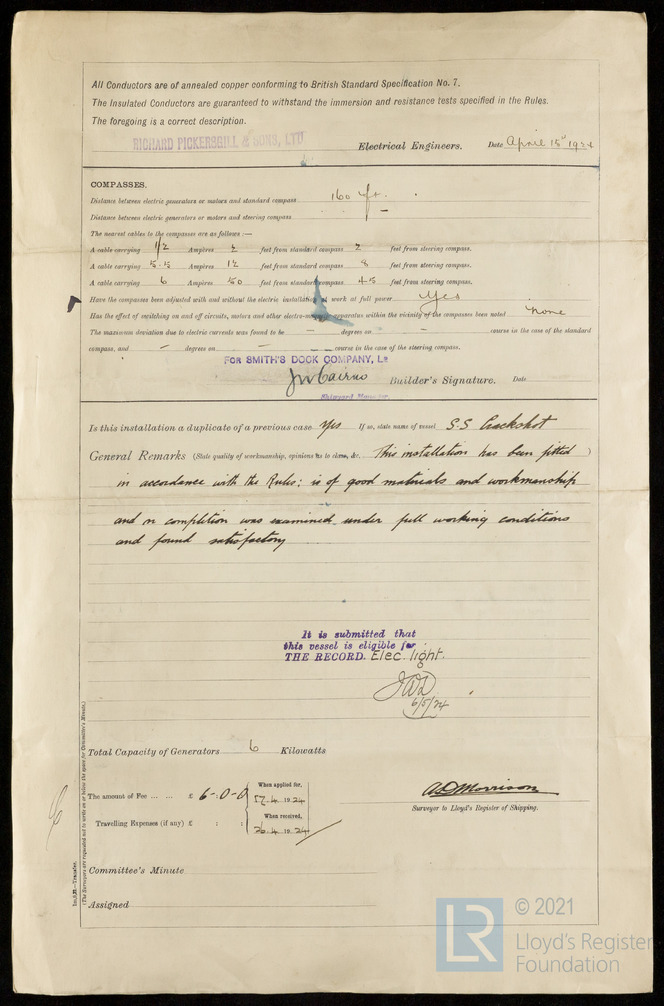 All Conductors are of annealed copper conforming to British Standard Specification No. 7.
The Insulated Conductors are guaranteed to withstand the immersion and resistance tests specified in the Rules.
The foregoing is a correct description.
RICHARD PICKERSGILL & SONS, LTD Electrical Engineers. Date April 15th 1924
COMPASSES.
Distance between electric generators or motors and standard compass 160 ft.
Distance between electric generators or motors and steering compass
The nearest cables to the compasses are as follows:—
A cable carrying 1/2 Ampères 2 feet from standard compass 2 feet from steering compass.
A cable carrying 5.5 Ampères 12 feet from standard compass 8 feet from steering compass.
A cable carrying 6 Ampères 50 feet from standard compass 45 feet from steering compass.
Have the compasses been adjusted with and without the electric installation at work at full power Yes
Has the effect of switching on and off circuits, motors and other electro-magnetic apparatus within the vicinity of the compasses been noted none
The maximum deviation due to electric currents was found to be — degrees on — course in the case of the standard
compass, and — degrees on — course in the case of the steering compass.
FOR SMITH'S DOCK COMPANY, Ld
JW Cairns Builder's Signature. Date
Shipyard Manager.
Is this installation a duplicate of a previous case Yes If so, state name of vessel S.S Crackshot
General Remarks (State quality of workmanship, opinions as to class, &c. This installation has been fitted )
in accordance with the Rules; is of good materials and workmanship
and on completion was examined under full working conditions
and found satisfactory
It is submitted that
this vessel is eligible for
THE RECORD. Elec. light.
JWD
6/5/24
Total Capacity of Generators 6 Kilowatts
The amount of Fee ... ... £ 6-0-0 When applied for, 17.4.1924
Travelling Expenses (if any) £ : : When received, 26.4.1924
A.D. Morrison
Surveyor to Lloyd's Register of Shipping.
Committee's Minute
Assigned
(The Surveyors are requested not to write on or below the space for Committee's Minute.)
LR
© 2021
Lloyd's Register
Foundation